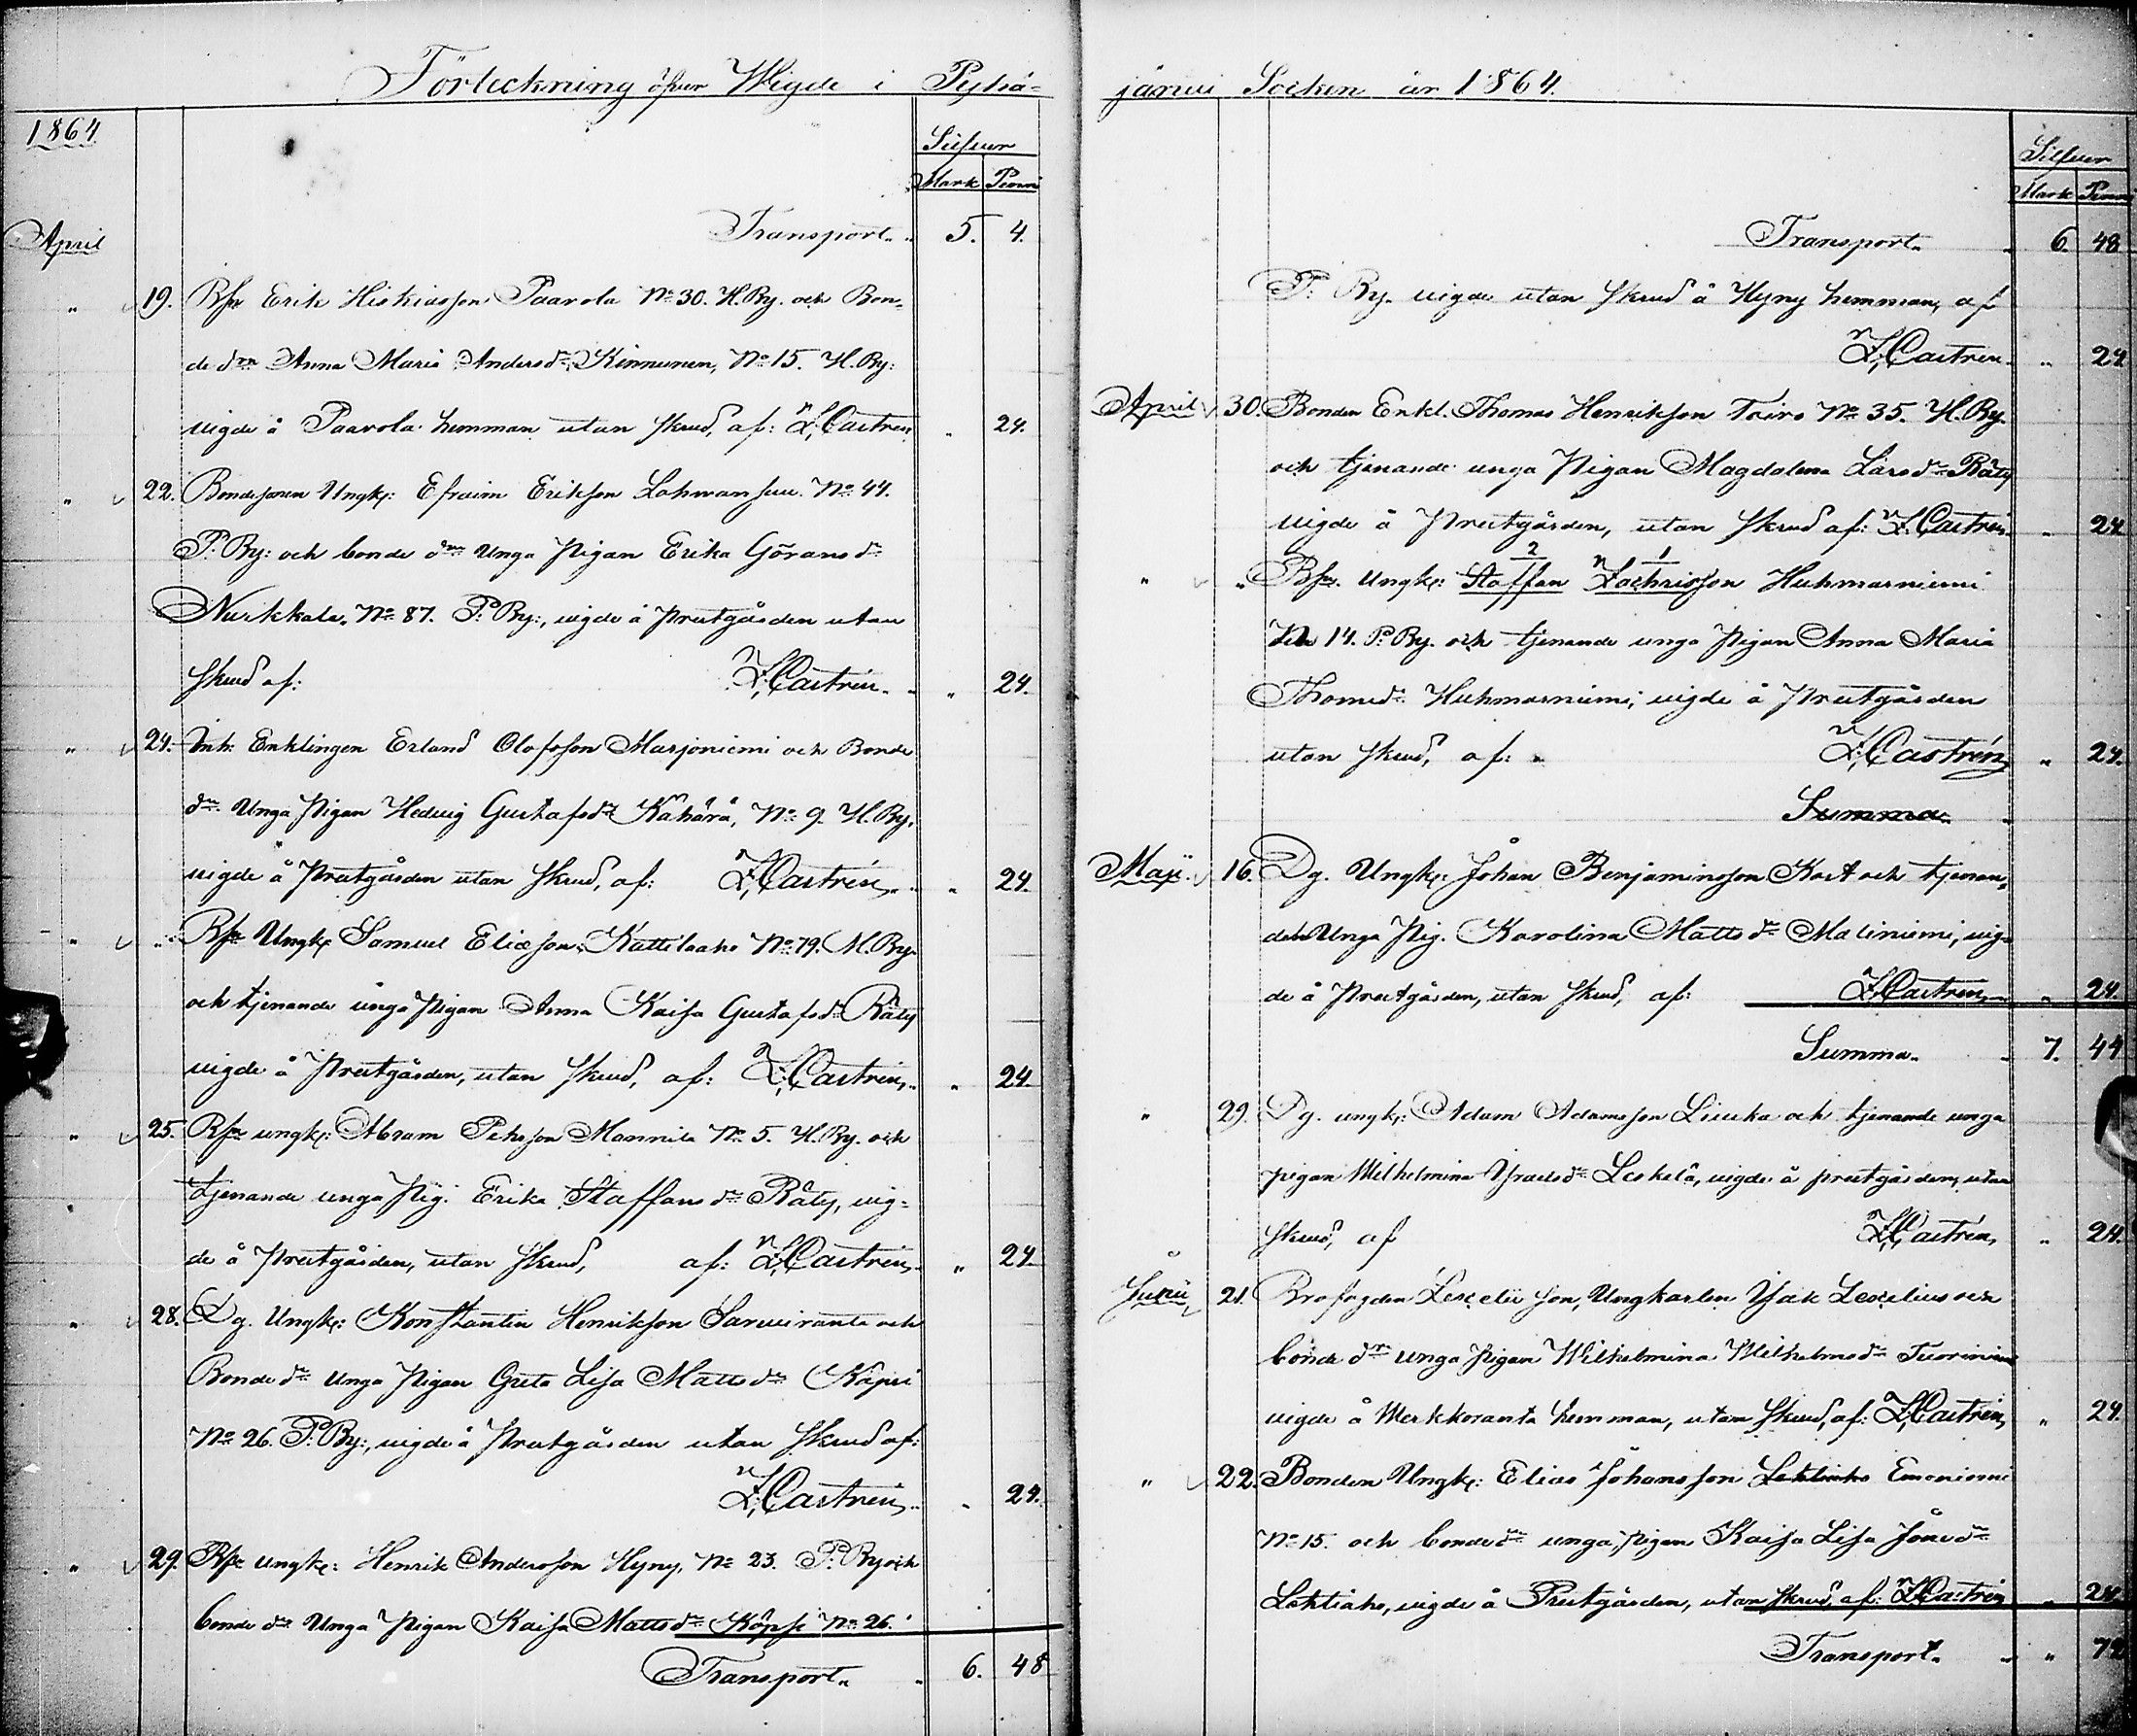 Förteckning öfver Wigde i Pyhä-
1864.
Silfver
Mark Penni
April
Transport.. 5. 4.
" 19. Bsn Erik Hiskiasson Paavola No 30. H. By. och Bon-
de drn Anna Maria Andersdr Kinnunen, No 15. H. By:
vigde å Paavola hemman utan skrud, af: Z. Castrén " 24.
" 22. Bondesonen Ungk: Efraim Eriksson Lohvansuu No 44.
P. By: och bonde drn Unga Pigan Erika Göransdr
Nurkkala. No 87. P. By:, vigde å Prestgården utan
skrud af: Z. Castrén. " 24.
" 24. Inh. Enklingen Erland Olofsson Marjoniemi och Bonde
drn Unga Pigan Hedvig Gustafsdr Kähärä, No 9. H. By.
vigde å Prestgården utan skrud, af: Z. Castrén, " 24.
" " Bsn Ungk: Samuel Eliasson Kattilaaho No 79. M. By.
och tjenande unga Pigan Anna Kaisa Gustafsdr Räty
vigde å Prestgården, utan skrud, af: Z. Castrén, " 24.
" 25. Bsn ungk: Abram Petersson Mannila No 5. H. By. och
tjenande unga Pig: Erika Staffansdr Räty, vig-
de å Prestgården, utan skrud, af: Z. Castrén, " 24.
" 28. Dg. Ungk: Konstantin Henriksson Sarviranta och
Bonde dr unga Pigan Greta Lisa Mattsdr Käpsi
No 26. P. By:, vigde å Prestgården utan skrud af:
Z. Castrén, " 24.
" 29. Bsn ungk: Henrik Andersson Hyny, No 23. P. By och
bonde dr Unga Pigan Kaisa Mattsdr Köpsi No 26.
Transport.. 6. 48
järvi Socken år 1864.
Silfver
Mark Penni
Transport.. 6. 48
P. By. vigde utan skrud å Hyny hemman, af
Z. Castrén. " 24
April 30. Bonden Enkl. Thomas Henriksson Toivo No 35. H. By.
och tjenande unga Pigan Magdalena Larsdr Räty
vigde å Prestgården, utan skrud af: Z. Castrén. " 24
2 1
" " Bsn. Ungk: Staffan Zachrisson Huhmarniemi
No 14. P. By. och tjenande unga Pigan Anna Maria
Thomædr Huhmarniemi, vigde å Prestgården
utan skrud, af: Z. Castrén, " 24.
Summa.
Maji. 16. Dg. Ungk: Johan Benjaminsson Kort och tjenan-
de Unga Pig. Karolina Mattsdr Maliniemi, vig-
de å Prestgården, utan skrud, af: Z. Castrén, " 24.
Summa. 7. 44
" 29. Dg. ungk: Adam Adamsson Liuska och tjenande unga
pigan Wilhelmina Israelsdr Leskelä, vigde å prestgården, utan
skrud, af Z. Castrén, " 24.
Junii 21. Brofogden Lexelii son, Ungkarlen Isak Lexelius och
bonde drn unga Pigan Wilhelmina Wilhelmsdr Tuorinien
vigde å Merkkoranta hemman, utan skrud, af: Z. Castrén, " 24.
" 22. Bonden Ungk: Elias Johansson Lehtiaho Emoniemi
No 15. och bonde dr unga Pigan Kaisa Lisa Jönsdr
Lehtiaho, vigde å Prestgården, utan skrud, af: Z. Castrén " 24.
Transport.. " 72